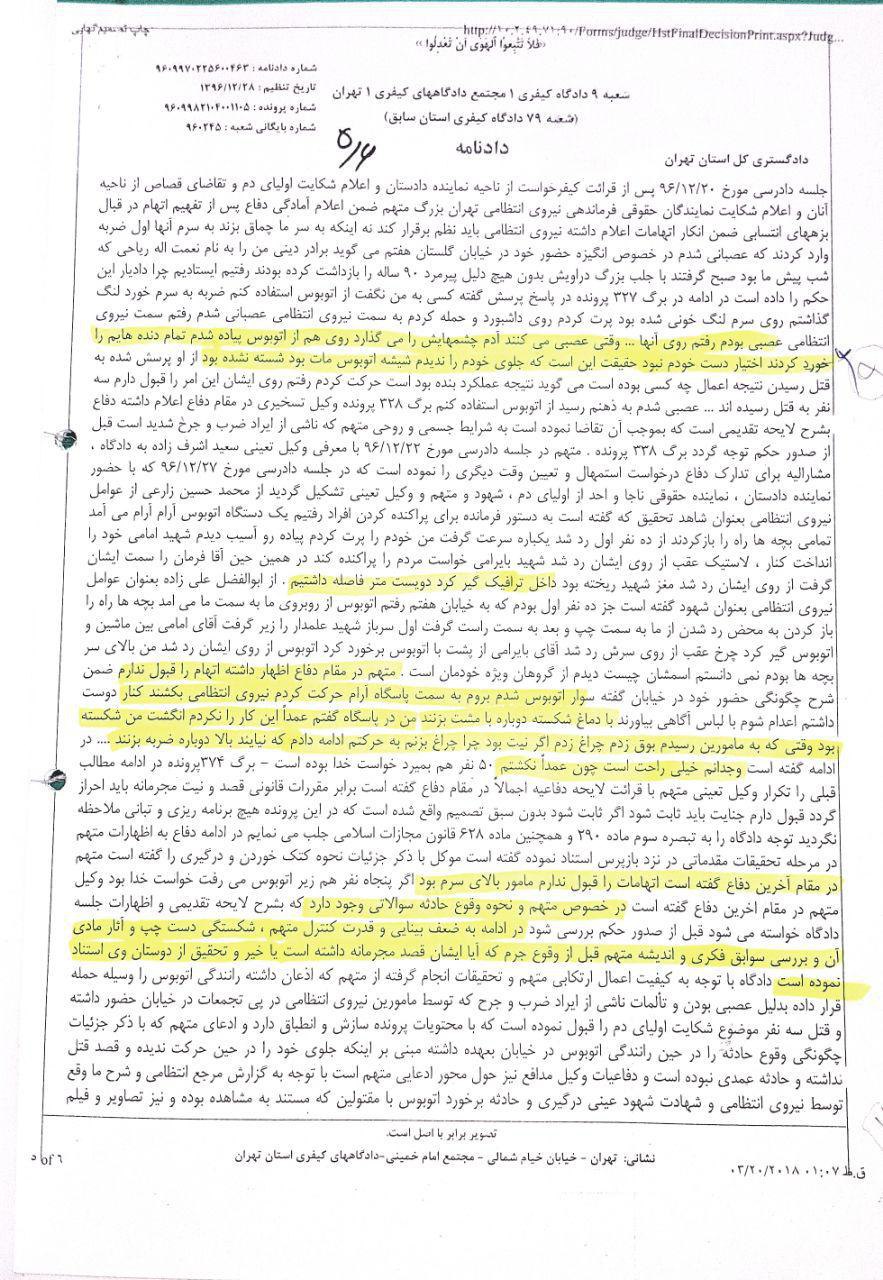 چاپ تصمیم نهایی
http://10.2.49.71:90/Forms/judge/HstFinalDecisionPrint.aspx?Judg...
«فلا تتبعوا الهوی ان تعدلوا»
شماره دادنامه : ۹۶۰۹۹۷۰۲۲۵۶۰۰۴۶۳
تاریخ تنظیم : ۱۳۹۶/۱۲/۲۸
شماره پرونده : ۹۶۰۹۹۸۲۱۰۴۰۰۱۱۰۵
شماره بایگانی شعبه : ۹۶۰۲۴۵
شعبه ۹ دادگاه کیفری ۱ مجتمع دادگاههای کیفری ۱ تهران
(شعبه ۷۹ دادگاه کیفری استان سابق)
۵/۶
دادنامه
دادگستری کل استان تهران
جلسه دادرسی مورخ ۹۶/۱۲/۲۰ پس از قرائت کیفرخواست از ناحیه نماینده دادستان و اعلام شکایت اولیای دم و تقاضای قصاص از ناحیه
آنان و اعلام شکایت نمایندگان حقوقی فرماندهی نیروی انتظامی تهران بزرگ متهم ضمن اعلام آمادگی دفاع پس از تفهیم اتهام در قبال
بزههای انتسابی ضمن انکار اتهامات اعلام داشته نیروی انتظامی باید نظم برقرار کند نه اینکه به سر ما چماق بزند به سرم آنها اول ضربه
وارد کردند که عصبانی شدم در خصوص انگیزه حضور خود در خیابان گلستان هفتم می گوید برادر دینی من را به نام نعمت اله ریاحی که
شب پیش ما بود صبح گرفتند با جلب بزرگ دراویش بدون هیچ دلیل پیرمرد ۹۰ ساله را بازداشت کرده بودند رفتیم ایستادیم چرا دادیار این
حکم را داده است در ادامه در برگ ۳۲۷ پرونده در پاسخ پرسش گفته کسی به من نگفت از اتوبوس استفاده کنم ضربه به سرم خورد لنگ
گذاشتم روی سرم لنگ خونی شده بود پرت کردم روی داشبورد و حمله کردم به سمت نیروی انتظامی عصبانی شدم رفتم سمت نیروی
انتظامی عصبی بودم رفتم روی آنها ... وقتی عصبی می کنند آدم چشمهایش را می گذارد روی هم از اتوبوس پیاده شدم تمام دنده هایم را
خورد کردند اختیار دست خودم نبود حقیقت این است که جلوی خودم را ندیدم شیشه اتوبوس مات بود شسته نشده بود از او پرسش شده به
قتل رسیدن نتیجه اعمال چه کسی بوده است می گوید نتیجه عملکرد بنده بود است حرکت کردم رفتم روی ایشان این امر را قبول دارم سه
نفر به قتل رسیده اند ... عصبی شدم به ذهنم رسید از اتوبوس استفاده کنم برگ ۳۲۸ پرونده وکیل تسخیری در مقام دفاع اعلام داشته دفاع
بشرح لایحه تقدیمی است که بموجب آن تقاضا نموده است به شرایط جسمی و روحی متهم که ناشی از ایراد ضرب و جرح شدید است قبل
از صدور حکم توجه گردد برگ ۳۳۸ پرونده . متهم در جلسه دادرسی مورخ ۹۶/۱۲/۲۲ با معرفی وکیل تعینی سعید اشرف زاده به دادگاه ،
مشارالیه برای تدارک دفاع درخواست استمهال و تعیین وقت دیگری را نموده است که در جلسه دادرسی مورخ ۹۶/۱۲/۲۷ که با حضور
نماینده دادستان ، نماینده حقوقی ناجا و احد از اولیای دم ، شهود و متهم و وکیل تعینی تشکیل گردید از محمد حسین زارعی از عوامل
نیروی انتظامی بعنوان شاهد تحقیق که گفته است به دستور فرمانده برای پراکنده کردن افراد رفتیم یک دستگاه اتوبوس آرام آرام می آمد
تمامی بچه ها راه را بازکردند از ده نفر اول رد شد یکباره سرعت گرفت من خودم را پرت کردم پیاده رو آسیب دیدم شهید امامی خود را
انداخت کنار ، لاستیک عقب از روی ایشان رد شد شهید بایرامی خواست مردم را پراکنده کند در همین حین آقا فرمان را سمت ایشان
گرفت از روی ایشان رد شد مغز شهید ریخته بود داخل ترافیک گیر کرد دویست متر فاصله داشتیم . از ابوالفضل علی زاده بعنوان عوامل
نیروی انتظامی بعنوان شهود گفته است جز ده نفر اول بودم که به خیابان هفتم رفتم اتوبوس از روبروی ما به سمت ما می امد بچه ها راه را
باز کردن به محض رد شدن از ما به سمت چپ و بعد به سمت راست گرفت اول سرباز شهید علمدار را زیر گرفت آقای امامی بین ماشین و
اتوبوس گیر کرد چرخ عقب از روی سرش رد شد آقای بایرامی از پشت با اتوبوس برخورد کرد اتوبوس از روی ایشان رد شد من بالای سر
بچه ها بودم نمی دانستم اسمشان چیست دیدم از گروهان ویژه خودمان است . متهم در مقام دفاع اظهار داشته اتهام را قبول ندارم ضمن
شرح چگونگی حضور خود در خیابان گفته سوار اتوبوس شدم بروم به سمت پاسگاه آرام حرکت کردم نیروی انتظامی بکشند کنار دوست
داشتم اعدام شوم با لباس آگاهی بیاورند با دماغ شکسته دوباره با مشت بزنند من در پاسگاه گفتم عمداً این کار را نکردم انگشت من شکسته
بود وقتی که به مامورین رسیدم بوق زدم چراغ زدم اگر نیت بود چرا چراغ بزنم به حرکتم ادامه دادم که نیایند بالا دوباره ضربه بزنند .... در
ادامه گفته است وجدانم خیلی راحت است چون عمداً نکشتم ۵۰ نفر هم بمیرد خواست خدا بوده است - برگ ۳۷۴پرونده در ادامه مطالب
قبلی را تکرار وکیل تعینی متهم با قرائت لایحه دفاعیه اجمالاً در مقام دفاع گفته است برابر مقررات قانونی قصد و نیت مجرمانه باید احراز
گردد قبول دارم جنایت باید ثابت شود اگر ثابت شود بدون سبق تصمیم واقع شده است که در این پرونده هیچ برنامه ریزی و تبانی ملاحظه
نگردید توجه دادگاه را به تبصره سوم ماده ۲۹۰ و همچنین ماده ۶۲۸ قانون مجازات اسلامی جلب می نمایم در ادامه دفاع به اظهارات متهم
در مرحله تحقیقات مقدماتی در نزد بازپرس استناد نموده گفته است موکل با ذکر جزئیات نحوه کتک خوردن و درگیری را گفته است متهم
در مقام آخرین دفاع گفته است اتهامات را قبول ندارم مامور بالای سرم بود اگر پنجاه نفر هم زیر اتوبوس می رفت خواست خدا بود وکیل
متهم در مقام اخرین دفاع گفته است در خصوص متهم و نحوه وقوع حادثه سوالاتی وجود دارد که بشرح لایحه تقدیمی و اظهارات جلسه
دادگاه خواسته می شود قبل از صدور حکم بررسی شود در ادامه به ضعف بینایی و قدرت کنترل متهم ، شکستگی دست چپ و آثار مادی
آن و بررسی سوابق فکری و اندیشه متهم قبل از وقوع جرم که آیا ایشان قصد مجرمانه داشته است یا خیر و تحقیق از دوستان وی استناد
نموده است دادگاه با توجه به کیفیت اعمال ارتکابی متهم و تحقیقات انجام گرفته از متهم که اذعان داشته رانندگی اتوبوس را وسیله حمله
قرار داده بدلیل عصبی بودن و تألمات ناشی از ایراد ضرب و جرح که توسط مامورین نیروی انتظامی در پی تجمعات در خیابان حضور داشته
و قتل سه نفر موضوع شکایت اولیای دم را قبول نموده است که با محتویات پرونده سازش و انطباق دارد و ادعای متهم که با ذکر جزئیات
چگونگی وقوع حادثه را در حین رانندگی اتوبوس در خیابان بعهده داشته مبنی بر اینکه جلوی خود را در حین حرکت ندیده و قصد قتل
نداشته و حادثه عمدی نبوده است و دفاعیات وکیل مدافع نیز حول محور ادعایی متهم است با توجه به گزارش مرجع انتظامی و شرح ما وقع
توسط نیروی انتظامی و شهادت شهود عینی درگیری و حادثه برخورد اتوبوس با مقتولین که مستند به مشاهده بوده و نیز تصاویر و فیلم
تصویر برابر با اصل است.
نشانی: تهران - خیابان خیام شمالی - مجتمع امام خمینی-دادگاههای کیفری استان تهران
۵ of ۶
۰۳/۲۰/۲۰۱۸ ۰۱:۰۷ ق.ظ